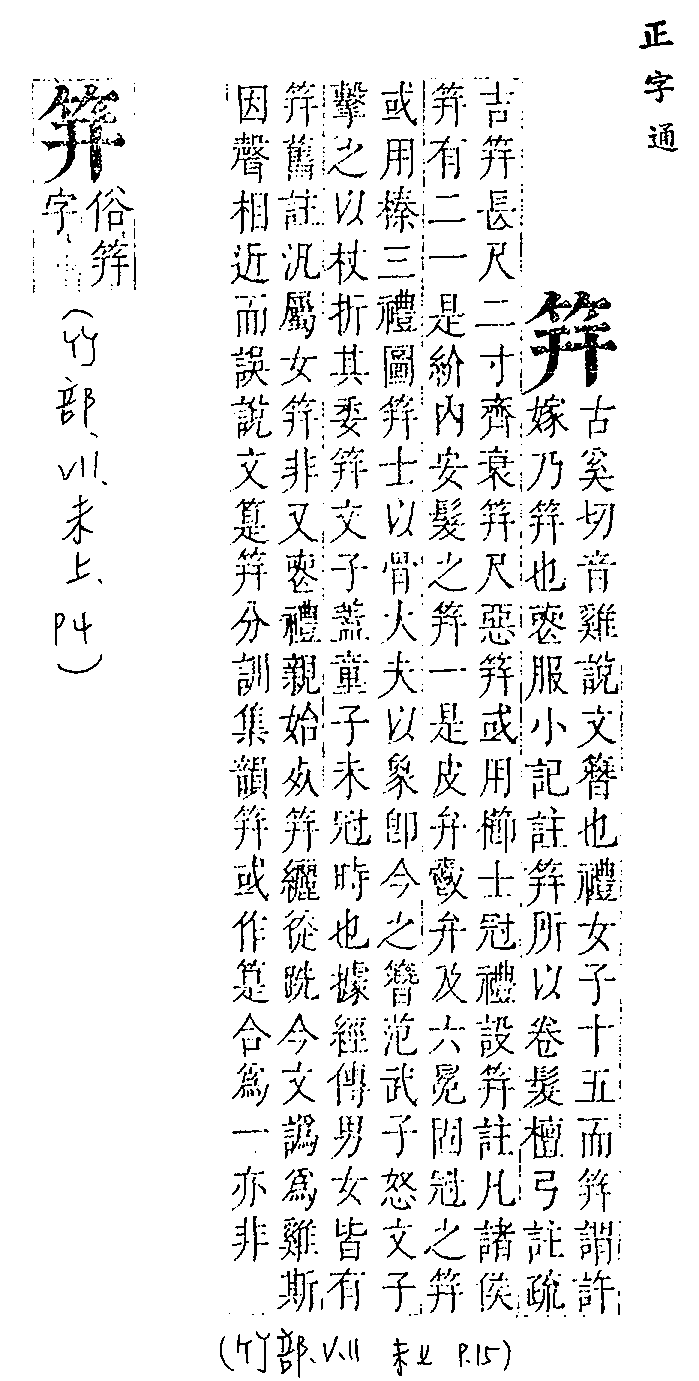 正字通
筓
古奚切音雞說文簪也禮女子十五而筓謂許
嫁乃筓也喪服小記註筓所以卷髮檀弓註疏
吉筓長尺二寸齊衰筓尺惡筓或用櫛士冠禮設筓註凡諸侯
筓有二一是紒內安髮之筓一是皮弁爵弁及六冕固冠之筓
或用榛三禮圖筓士以骨大夫以象卽今之簪范武子怒文子
擊之以杖折其委筓文子葢童子未冠時也據經傳男女皆有
筓舊註汎屬女筓非又喪禮親始𣦸筓纚從跣今文譌爲雞斯
因聲相近而誤說文筓分訓集韻筓或作合爲一亦非
(竹部、V.11 未上 P.15)
笄
俗筓
字
(竹部、V11.未上、P4)